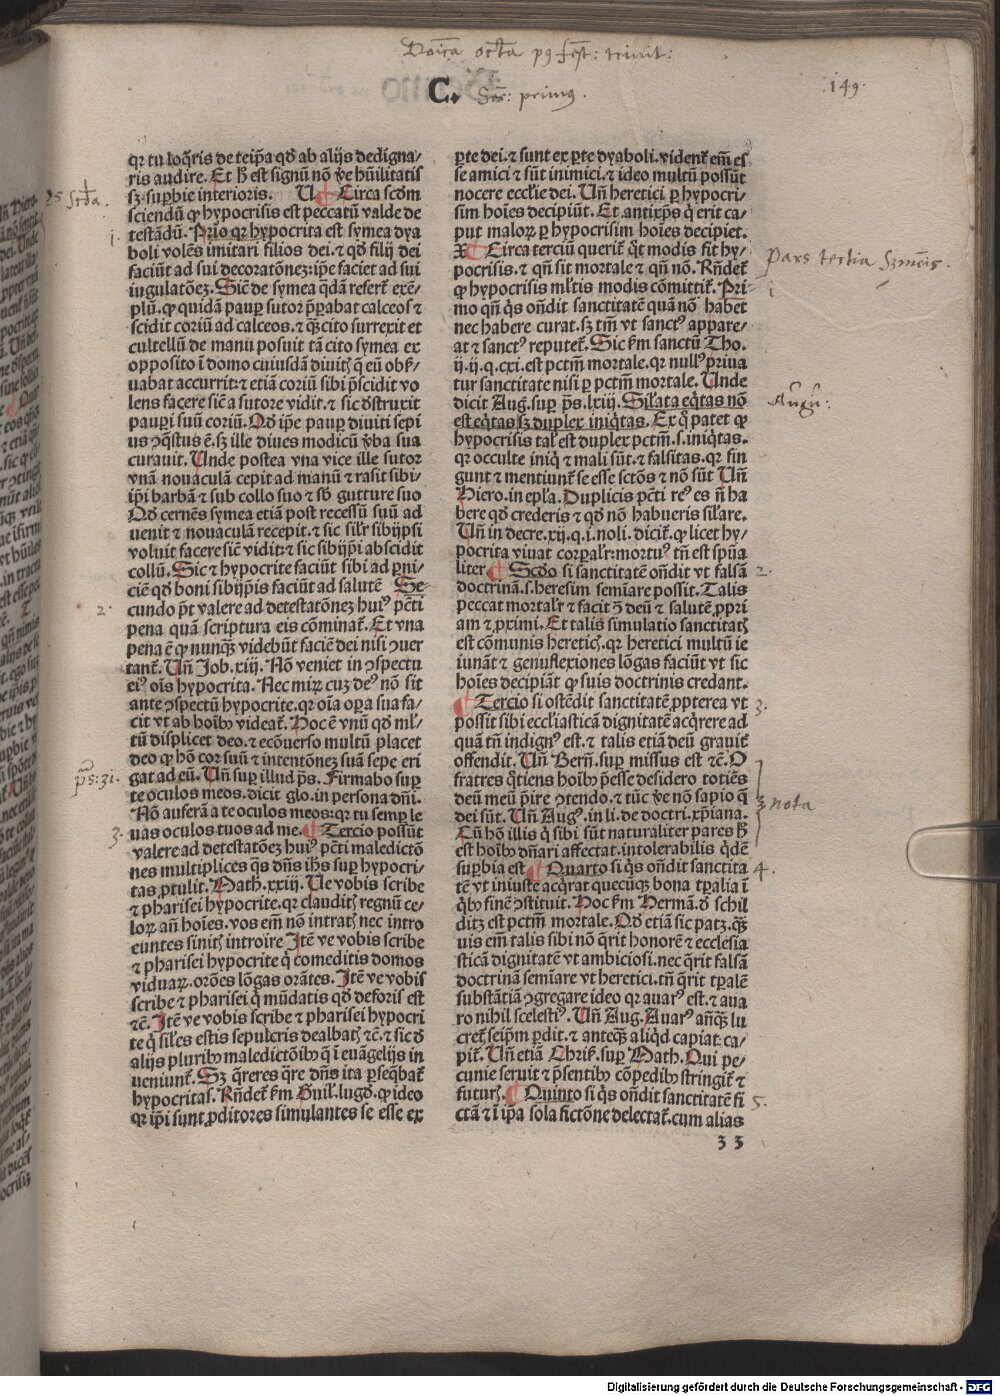 Doica octa p9 fest: trinit:
C. Ser: primus.
149
qꝛ tu loq̄ris de teip̄a qd̓ ab alijs dedigna/
ris audire. Et ḣ est signū nō ꝟe hūilitatis
sꝫ supbie interioris. U ¶ Circa scd̓m
sciendū ꝙ hypocrisis est peccatū valde de
testādū. Prio qꝛ hypocrita est symea dya
boli volēs imitari filios dei. ⁊ qd̓ filij dei
faciūt ad sui decoratōneꝫ: ip̄e faciet ad sui
iugulatōeꝫ. Sic̄ de symea q̄dā refert̄ exē/
plū. ꝙ quidā paup̱ sutor p̄parabat calceos ⁊
scidit coriū ad calceos. ⁊ q̄sꝫ cito surrexit et
cultellū de manu posuit tā cito symea ex
opposito ī domo cuiusdā diuitꝭ q̄ eū obẜ/
uabat accurrit: ⁊ etiā coriū sibi p̄scidit vo
lens facere sic̄ a sutore vidit. ⁊ sic d̓struxit
paup̱i suū coriū. Qd̓ ip̄e paup̱ diuiti sepi
us ꝯq̄stus ē. sꝫ ille diues modicū ꝟba sua
curauit. Unde postea vna vice ille sutor
vnā nouaculā cepit ad manū ⁊ rasit sibi/
ip̄i barbā ⁊ sub collo suo ⁊ sb̓ gutture suo
Qd̓ cernēs symea etiā post recessū suū ad
uenit ⁊ nouaculā recepit. ⁊ sic sil̓r sibijp̄si
voluit facere sic̄ vidit: ⁊ sic sibijp̄i abscidit
collū. Sic ⁊ hypocrite faciūt sibi ad p̱ni/
ciē qd̓ boni sibijp̄is faciūt ad salutē Se-
cundo p̄t valere ad detestatōneꝫ huiꝰ pc̄ti
pena quā scriptura eis cōminat̄. Et vna
pena ē ꝙ nunq̄ꝫ videbūt faciē dei nisi ꝯuer
tant̄. Un̄ Job. xiij. Nō veniet in ꝯspectu
eiꝰ oīs hypocrita. Nec mirꝫ cuꝫ deꝰ nō sit
ante ꝯspectū hypocrite. qꝛ oīa oꝑa sua fa/
cit vt ab hoībꝰ videat̄. Hoc ē vnū qd̓ ml̓/
tū displicet deo. ⁊ ecōuerso multū placet
deo ꝙ hō cor suū ⁊ intentōneꝫ suā sepe eri
gat ad eū. Un̄ sup̱ illud ps̄. Firmabo sup̱
te oculos meos. dicit glo. in persona dn̄i.
Nō auferā a te oculos meos: qꝛ tu semꝑ le
uas oculos tuos ad me. ¶ Tercio possūt
valere ad detestatōeꝫ huiꝰ pc̄ti maledictō
nes multiplices q̄s dn̄s ih̄s sup̱ hypocri/
tas ꝓtulit. Math. xxiij. Ue vobis scribe
⁊ pharisei hypocrite. qꝛ clauditꝭ regnū ce/
loꝝ an̄ hoīes. vos em̄ nō intratꝭ nec intro
euntes sinitꝭ introire Itē ve vobis scribe
⁊ pharisei hypocrite q̄ comeditis domos
viduaꝝ. orōes lōgas orātes. Itē ve vobis
scribe ⁊ pharisei q̄ mūdatis qd̓ deforis est
⁊c̄. Itē ve vobis scribe ⁊ pharisei hypocri
te q̄ sil̓es estis sepulcris dealbatꝭ ⁊c̄. ⁊ sic d̓
alijs pluribꝰ maledictōibꝰ q̄ ī euāgelijs in
ueniunt̄. Sꝫ q̄reres q̄re dn̄s ita ꝑseq̄bat̄
hypocritas. Rn̄det̄ ẜm Guil. lugd̓. ꝙ ideo
qꝛ ip̄i sunt ꝓditores simulantes se esse ex
ꝑte dei. ⁊ sunt ex ꝑte dyaboli. vident̄ em̄ es
se amici ⁊ sūt inimici. ⁊ ideo multū possūt
nocere eccl̓ie dei. Un̄ heretici ꝑ hypocri/
sim hoīes decipiūt. Et antixp̄s q̄ erit ca/
put maloꝝ ꝑ hypocrisim hoīes decipiet.
X ¶ Circa terciū querit̄ q̄t modis fit hy/
pocrisis. ⁊ qn̄ sit mortale ⁊ qn̄ nō. Rn̄det̄
ꝙ hypocrisis ml̓tis modis cōmittit̄. Pri/
mo qn̄ q̄s on̄dit sanctitatē quā nō habet
nec habere curat. sꝫ tm̄ vt sanctꝰ appare/
at ⁊ sanctꝰ reputet̄. Sic ẜm sanctū Tho.
ij. ij. q. cxi. est pctm̄ mortale. qꝛ nullꝰ priua
tur sanctitate nisi ꝑ pctm̄ mortale. Unde
dicit Aug. sup̱ ps̄. lxiij. Sil̓ata eq̄tas nō
est eq̄tas sꝫ duplex iniq̄tas. Ex q̄ patet ꝙ
hypocrisis tal̓ est duplex pctm̄. s. iniq̄tas.
qꝛ occulte iniq̄ ⁊ mali sūt. ⁊ falsitas. qꝛ fin
gunt ⁊ mentiunt̄ se esse sctōs ⁊ nō sūt Un̄
Hiero. in epl̓a. Duplicis pc̄ti reꝰ es n̄ ha
bere qd̓ crederis ⁊ qd̓ nō habueris sil̓are.
Un̄ in decre. xij. q. i. noli. dicit̄. ꝙ licet hy/
pocrita viuat corꝑal̓r: mortuꝰ tn̄ est spūa
liter ¶ Scd̓o si sanctitatē on̄dit vt falsā
doctrinā. s. heresim semīare possit. Talis
peccat mortal̓r ⁊ facit ꝯ deū ⁊ salutē ꝓpri
am ⁊ ꝓximi. Et talis simulatio sanctitatꝭ
est cōmunis hereticꝭ. qꝛ heretici multū ie
iunāt ⁊ genuflexiones lōgas faciūt vt sic
hoīes decipiāt ꝙ suis doctrinis credant.
¶ Tercio si ostēdit sanctitatē ꝓpterea vt
possit sibi eccl̓iasticā dignitatē acq̄rere ad
quā tn̄ indignꝰ est. ⁊ talis etiā deū grauit̄
offendit. Un̄ Bern̄. sup̱ missus est ⁊c̄. O
fratres q̄tiens hoībꝰ p̄esse desidero totiēs
deū meū p̄ire ꝯtendo. ⁊ tūc ꝟe nō sapio q̄
dei sūt. Un̄ Augꝰ. in li. de doctri. xp̄iana.
Cū hō illis q̄ sibi sūt naturaliter pares ḣ
est hoībꝰ dn̄ari affectat. intolerabilis q̄dē
suꝑbia est ¶ Quarto si q̄s on̄dit sanctita
tē vt iniuste acq̄rat quecūqꝫ bona tꝑalia ī
q̄bꝰ finē ꝯstituit. Hoc ẜm Hermā. d̓ schil
ditꝫ est pctm̄ mortale. Qd̓ etiā sic patꝫ. q̄ꝫ
uis em̄ talis sibi nō q̄rit honorē ⁊ ecclesia
sticā dignitatē vt ambiciosi. nec q̄rit falsā
doctrinā semīare vt heretici. tn̄ q̄rit tꝑalē
substātiā ꝯgregare ideo qꝛ auarꝰ est. ⁊ aua
ro nihil scelestiꝰ. Un̄ Aug. Auarꝰ anq̄ꝫ lu
cret̄ seip̄m ꝑdit. ⁊ anteq̄ꝫ aliq̄d capiat: ca/
pit̄. Un̄ etiā Chriẜ. sup̱ Math. Qui pe/
cunie seruit ⁊ p̄sentibꝰ cōpedibꝰ stringit̄ ⁊
futurꝭ. ¶ Quinto si q̄s on̄dit sanctitatē fi
ctā ⁊ ī ip̄a sola fictōne delectat̄. cum alias
33
1.
2.
ps: 31.
3.
Pars tertia Sermōis.
i
Augu:
2.
3.
nota
4.
5.
Digitalisierung gefördert durch die Deutsche Forschungsgemeinschaft - DFG